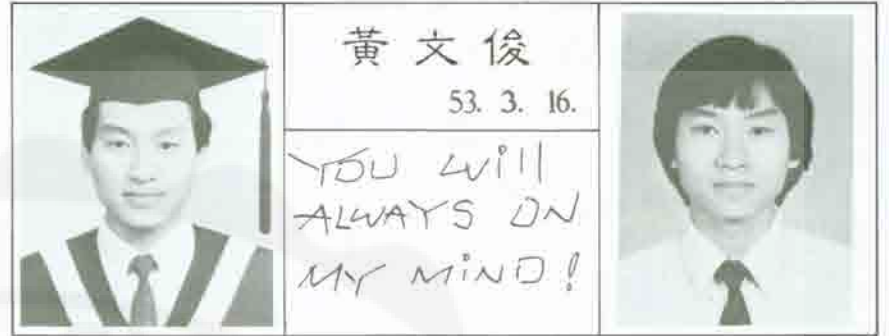 黃文俊
53. 3. 16.
YOU Will
ALWAYS ON
MY MiND!